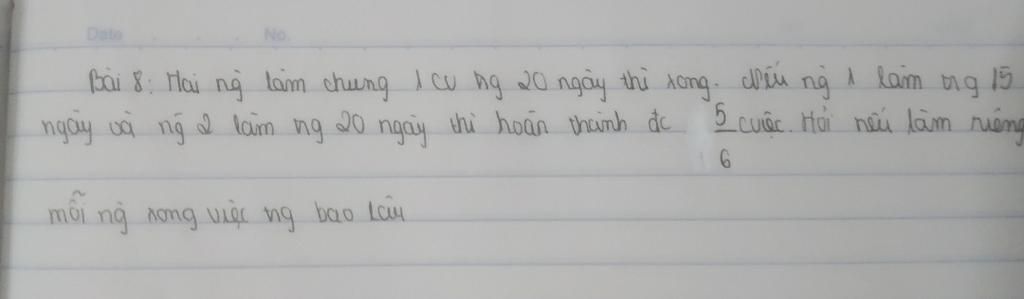 Date No.
Bài 8: Hai ng̀ làm chung 1 cv tr̀g 20 ngày thì xong. Nếu ng̀ 1 làm tr̀g 15
ngày và ng̀ 2 làm tr̀g 20 ngày thì hoàn thành đc 5/6 cviệc. Hỏi nếu làm riêng
mỗi ng̀ xong việc tr̀g bao lâu